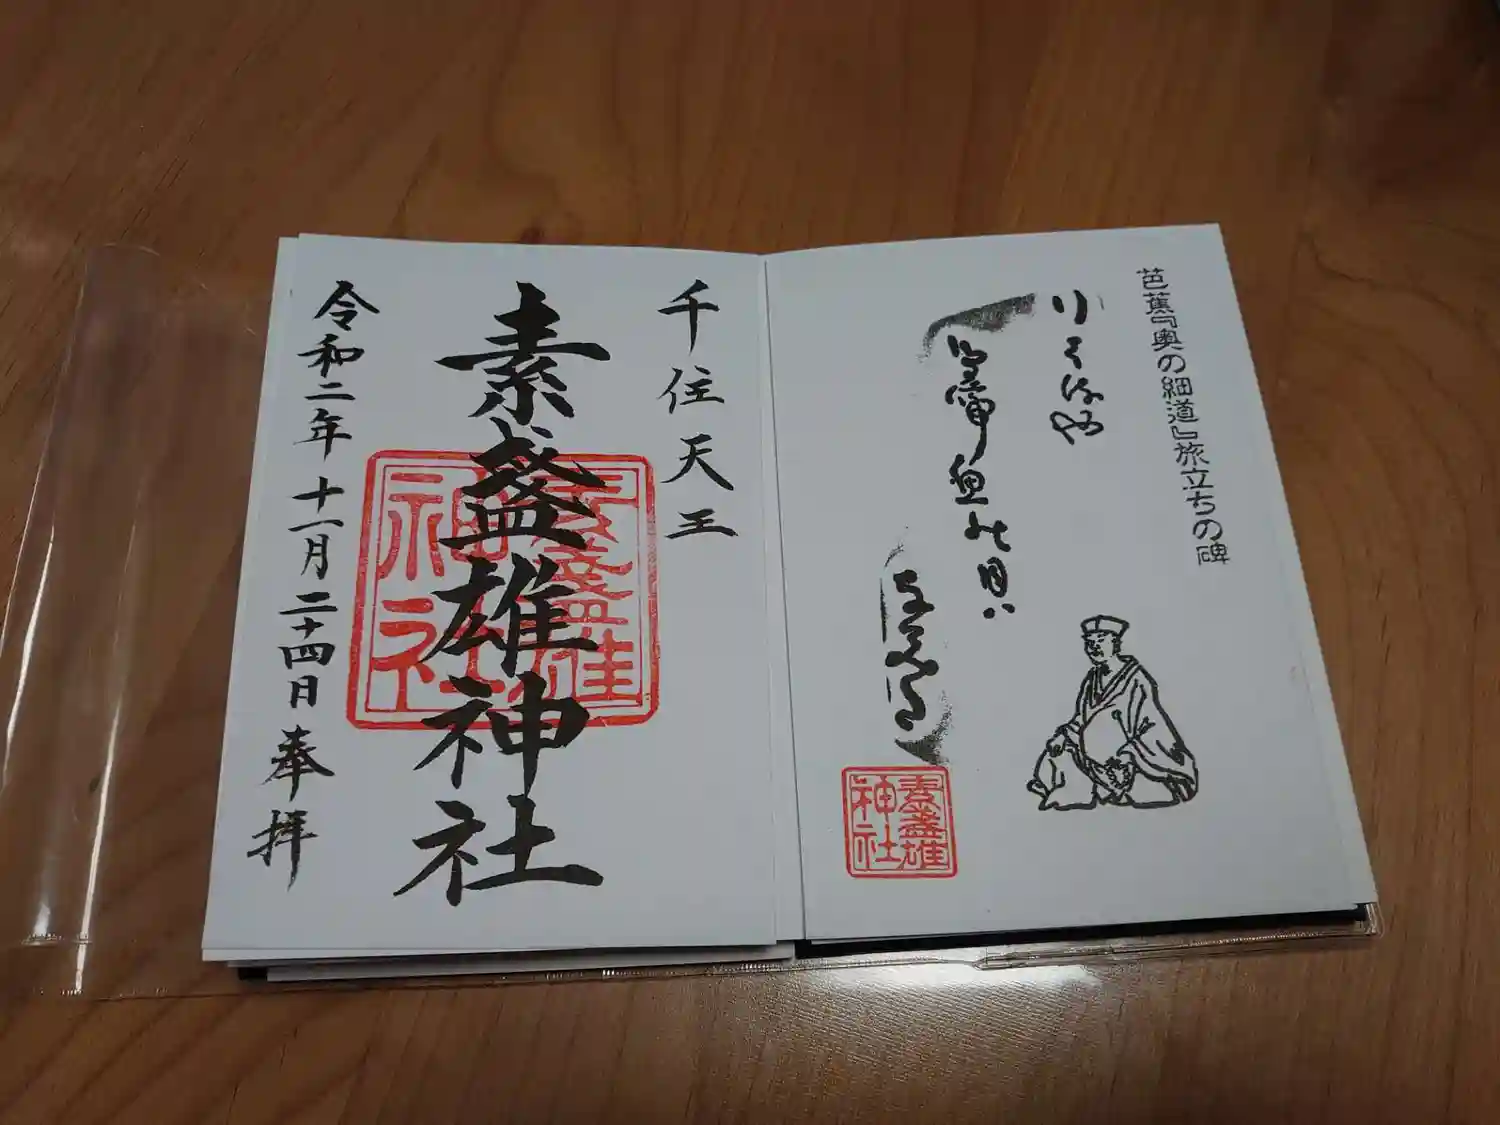 芭蕉『奥の細道』旅立ちの碑
鳥啼魚の目ハ
素盞雄
神社
千住天王
素盞雄神社
素盞雄
神社
令和二年十一月二十四日奉拝